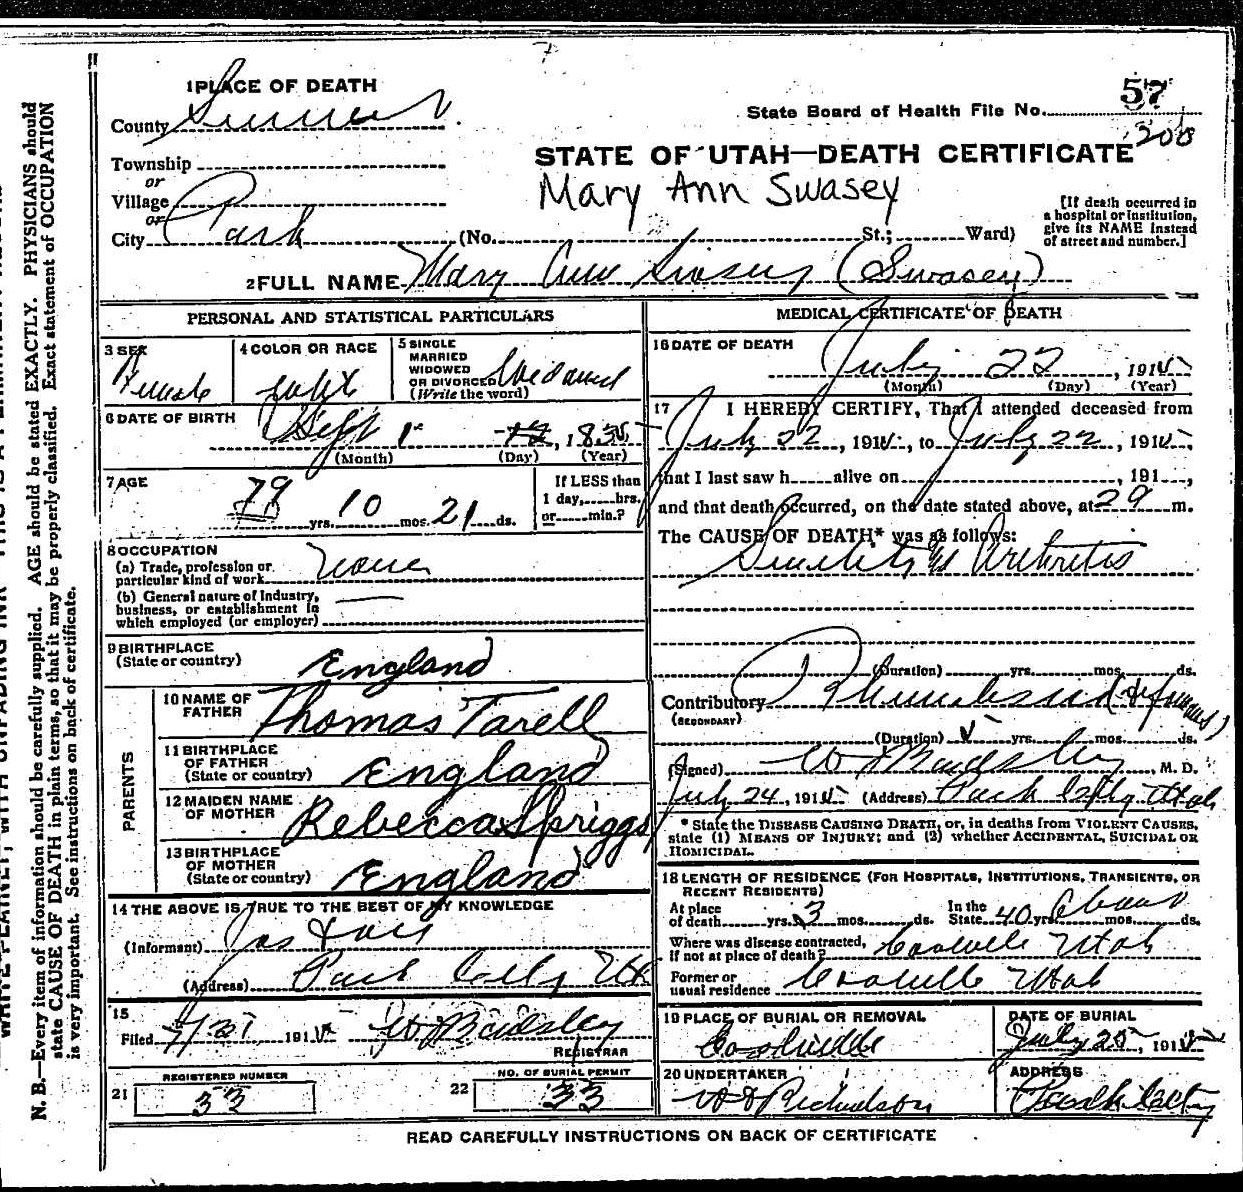 1 PLACE OF DEATH
County Summit
State Board of Health File No. 57
308
Township
or
Village
or
City Park
STATE OF UTAH—DEATH CERTIFICATE
Mary Ann Swasey
(No. St.; Ward)
[If death occurred in
a hospital or institution,
give its NAME instead
of street and number.]
2 FULL NAME Mary Ann (Swasey)
PERSONAL AND STATISTICAL PARTICULARS
3 SEX
Female
4 COLOR OR RACE
white
5 SINGLE
MARRIED
WIDOWED
OR DIVORCED
(Write the word)
Widowed
6 DATE OF BIRTH
Sept 1 12, 1835
(Month) (Day) (Year)
7 AGE
79 yrs. 10 mos. 21 ds.
If LESS than
1 day, hrs.
or min.?
8 OCCUPATION
(a) Trade, profession or
particular kind of work none
(b) General nature of Industry,
business, or establishment in
which employed (or employer)
9 BIRTHPLACE
(State or country) England
PARENTS
10 NAME OF
FATHER Thomas Tarell
11 BIRTHPLACE
OF FATHER
(State or country) England
12 MAIDEN NAME
OF MOTHER Rebecca Spriggs
13 BIRTHPLACE
OF MOTHER
(State or country) England
14 THE ABOVE IS TRUE TO THE BEST OF MY KNOWLEDGE
(Informant) Jas
(Address) Park City Ut
15
Filed 7/27 1915
REGISTRAR
REGISTERED NUMBER
21 33
NO. OF BURIAL PERMIT
22 33
MEDICAL CERTIFICATE OF DEATH
16 DATE OF DEATH
July 22, 1915
(Month) (Day) (Year)
17 I HEREBY CERTIFY, That I attended deceased from
July 22, 1915, to July 22, 1915,
that I last saw h alive on , 191 ,
and that death occurred, on the date stated above, at 29 m.
The CAUSE OF DEATH* was as follows:
Senility Arthritis
(Duration) yrs. mos. ds.
Contributory
(SECONDARY)
(Duration) yrs. mos. ds.
(Signed) , M. D.
July 24, 1915 (Address) Park City Utah
* State the DISEASE CAUSING DEATH, or, in deaths from VIOLENT CAUSES,
state (1) MEANS OF INJURY; and (2) whether ACCIDENTAL, SUICIDAL OR
HOMICIDAL.
18 LENGTH OF RESIDENCE (FOR HOSPITALS, INSTITUTIONS, TRANSIENTS, OR
RECENT RESIDENTS)
At place
of death yrs. 3 mos. ds.
In the
State 40 yrs. about mos. ds.
Where was disease contracted,
if not at place of death? Coalville Utah
Former or
usual residence Coalville Utah
19 PLACE OF BURIAL OR REMOVAL
Coalville
DATE OF BURIAL
July 25, 1915
20 UNDERTAKER
Richardson
ADDRESS
Park City
READ CAREFULLY INSTRUCTIONS ON BACK OF CERTIFICATE
N. B.—Every item of information should be carefully supplied. AGE should be stated EXACTLY. PHYSICIANS should
state CAUSE OF DEATH in plain terms, so that it may be properly classified. Exact statement of OCCUPATION
is very important. See instructions on back of certificate.